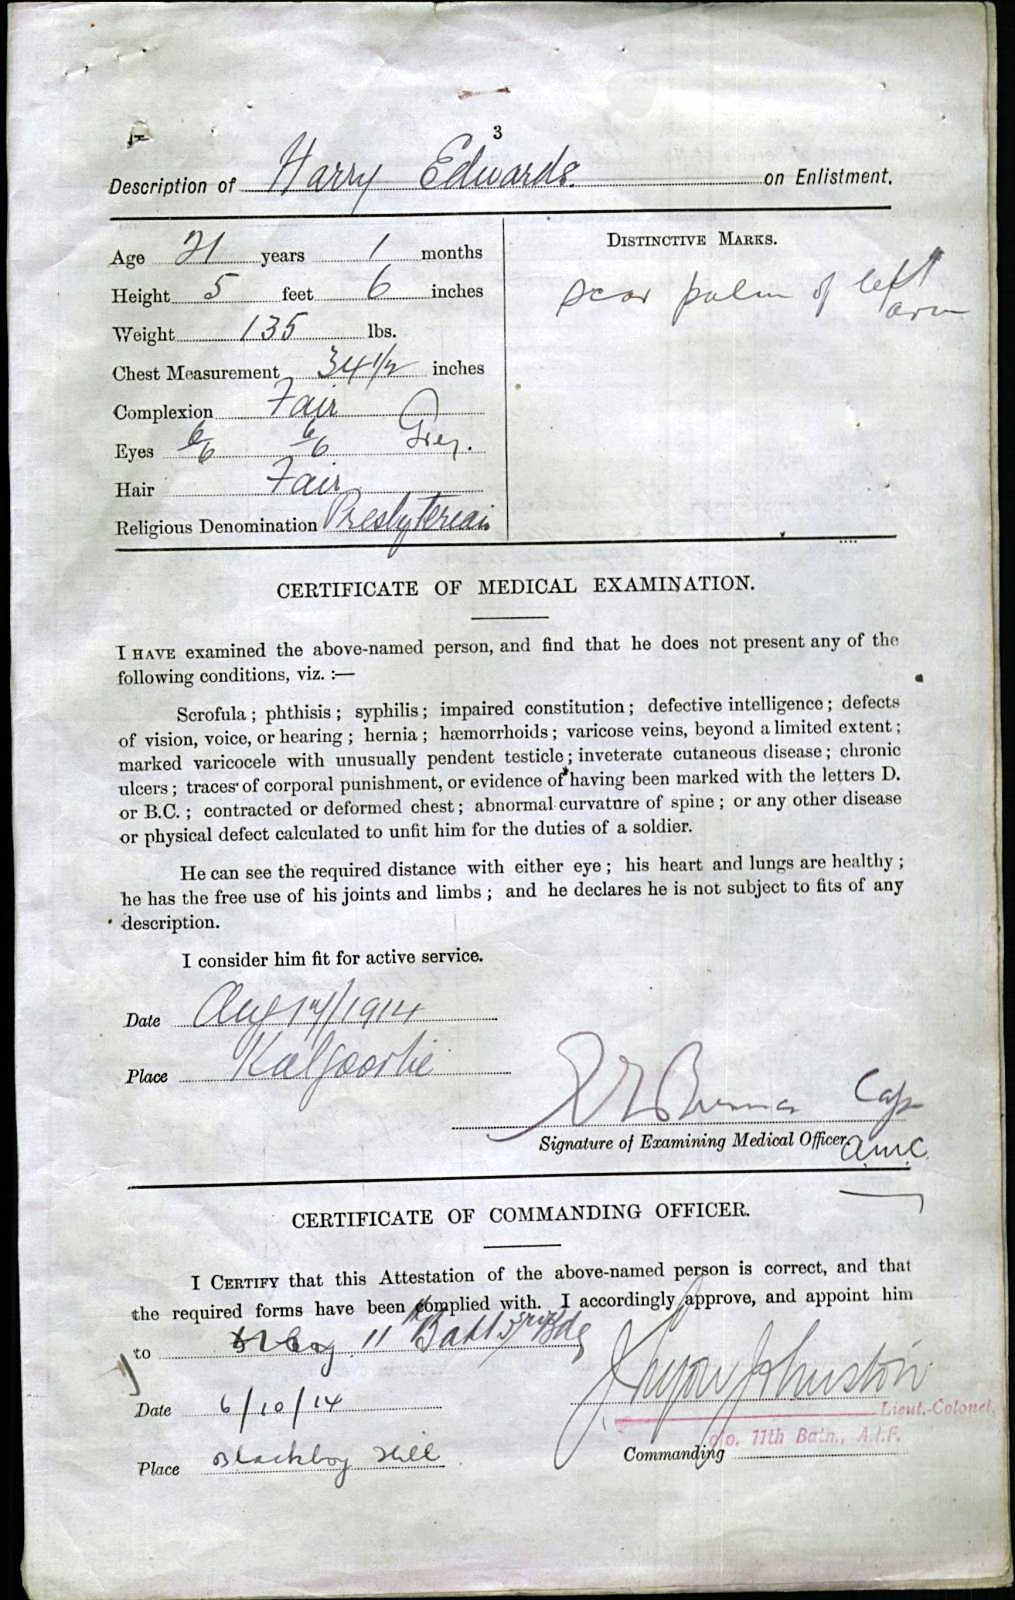 3
Description of Harry Edwards. on Enlistment.
Age 21 years 1 months
Height 5 feet 6 inches
Weight 135 lbs.
Chest Measurement 34 1/2 inches
Complexion Fair
Eyes 6/6 6/6 Grey.
Hair Fair
Religious Denomination Presbyterian
DISTINCTIVE MARKS.
scar palm of left
arm
CERTIFICATE OF MEDICAL EXAMINATION.
I HAVE examined the above-named person, and find that he does not present any of the
following conditions, viz. :—
Scrofula ; phthisis ; syphilis ; impaired constitution ; defective intelligence ; defects
of vision, voice, or hearing ; hernia ; hæmorrhoids ; varicose veins, beyond a limited extent ;
marked varicocele with unusually pendent testicle ; inveterate cutaneous disease ; chronic
ulcers ; traces of corporal punishment, or evidence of having been marked with the letters D.
or B.C. ; contracted or deformed chest ; abnormal curvature of spine ; or any other disease
or physical defect calculated to unfit him for the duties of a soldier.
He can see the required distance with either eye ; his heart and lungs are healthy ;
he has the free use of his joints and limbs ; and he declares he is not subject to fits of any
description.
I consider him fit for active service.
Date Aug 17/1914
Place Kalgoorlie
Cap
Signature of Examining Medical Officer.
A.M.C.
CERTIFICATE OF COMMANDING OFFICER.
I CERTIFY that this Attestation of the above-named person is correct, and that
the required forms have been complied with. I accordingly approve, and appoint him
to 11th Batt 3rd Bde
Date 6/10/14
J. Lyon Johnston
Lieut.-Colonel,
c/o. 11th Batn., A.I.F.
Commanding
Place Blackboy Hill